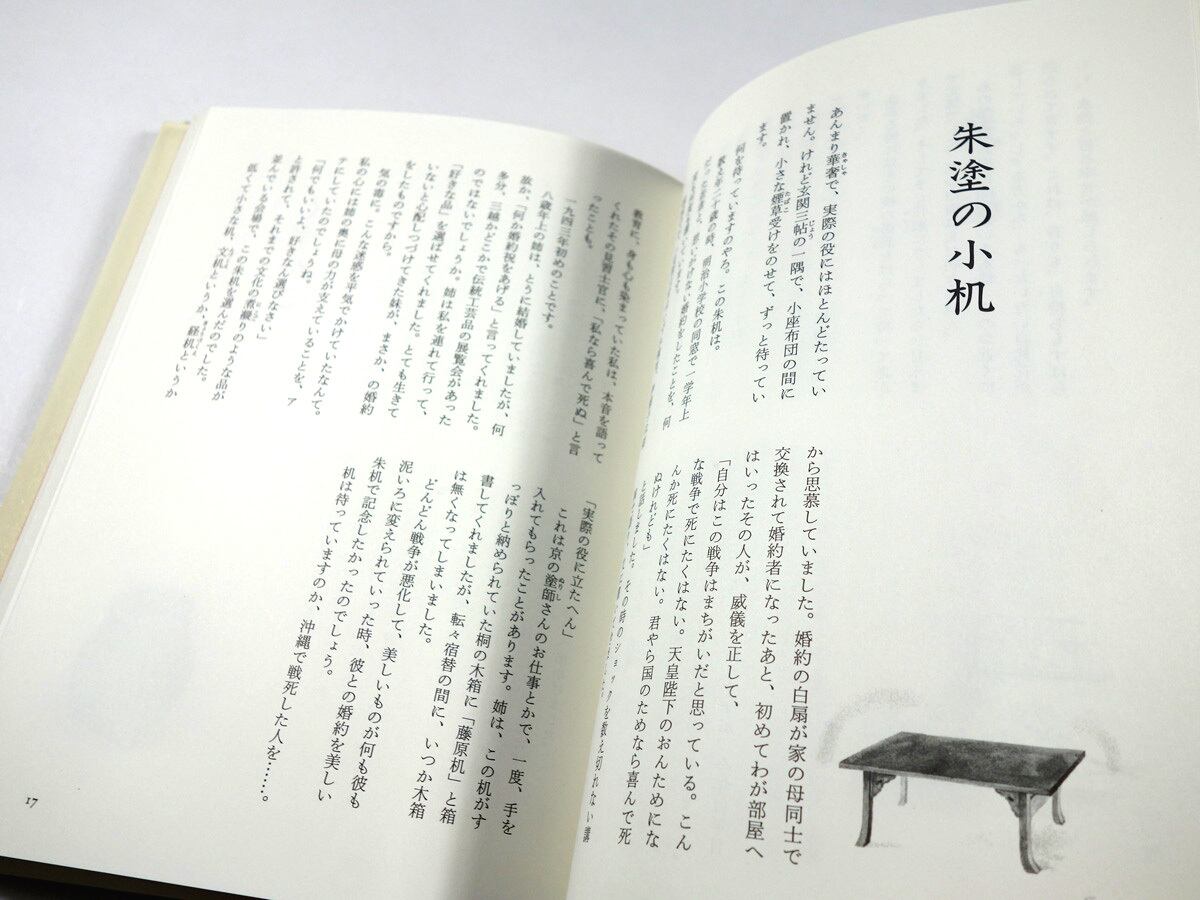 朱塗の小机
あんまり華奢で、実際の役にはほとんどたってい
ません。けれど玄関三帖の一隅で、小座布団の間に
置かれ、小さな煙草受けをのせて、ずっと待ってい
ます。
何を待っていますのやら。この朱机は。
数え年二十歳の時、明治小学校の同窓で一学年上
だった先輩と、思いがけない婚約をしたことを、何
から思慕していました。婚約の白扇が家の母同士で
交換されて婚約者になったあと、初めてわが部屋へ
はいったその人が、威儀を正して、
「自分はこの戦争はまちがいだと思っている。こん
な戦争で死にたくはない。天皇陛下のおんためにな
んか死にたくはない。君やら国のためなら喜んで死
ぬけれども」
と話しました。
その時のショック
を数え切れない
教育に、身も心も染まっていた私は、本音を語って
くれたその見習士官に、「私なら喜んで死ぬ」と言
ったことも。
一九四三年初めのことです。
八歳年上の姉は、とうに結婚していましたが、何
故か、「何か婚約祝をあげる」と言ってくれました。
多分、三越かどこかで伝統工芸品の展覧会があった
のではないでしょうか。姉は私を連れて行って、
「好きな品」を選ばせてくれました。とても生きて
いないと心配しつづけてきた妹が、まさか、の婚約
をしたものですから。
気の毒に、こんな迷惑を平気でかけていたなんて。
私の心には姉の奥に母の力が支えていることを、ア
テにしていたのでしょうね。
「何でもいいよ。好きなん選びなさい」
と許されて、それまでの文化の煮凝りのような品が
並んでいる会場で、この朱机を選んだのでした。
低くて小さな机、文机というか、経机というか
「実際の役に立たへん」
これは京の塗師さんのお仕事とかで、一度、手を
入れてもらったことがあります。姉は、この机がす
っぽりと納められていた桐の木箱に「藤原机」と箱
書してくれましたが、転々宿替の間に、いつか木箱
は無くなってしまいました。
どんどん戦争が悪化して、美しいものが何も彼も
泥いろに変えられていった時、彼との婚約を美しい
朱机で記念したかったのでしょう。
机は待っていますのか、沖縄で戦死した人を……。
17